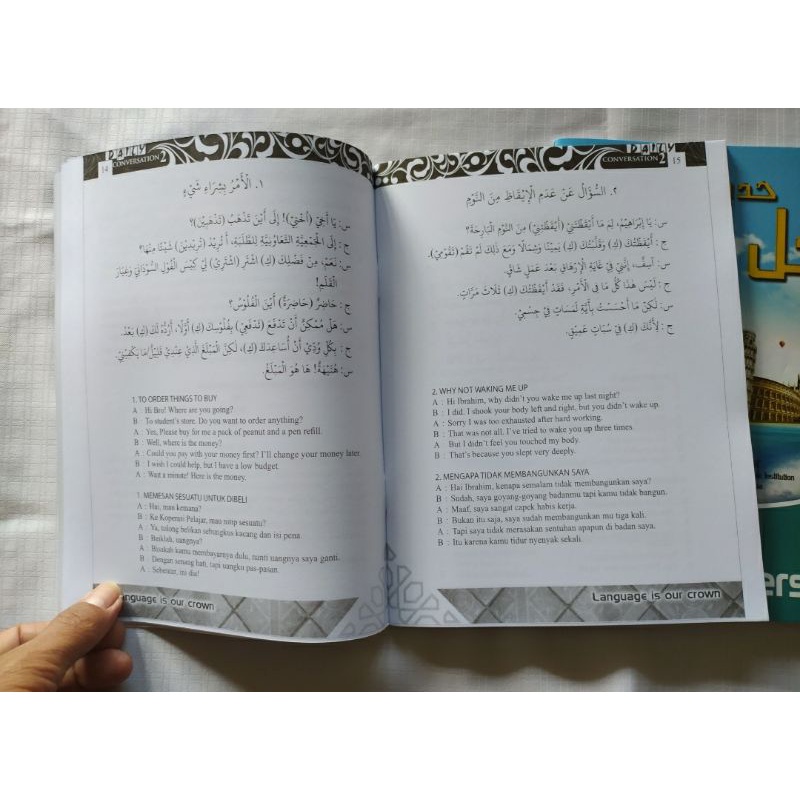 14
DAILY
CONVERSATION 2
١. الْأَمْرُ بِشِرَاءِ شَيْءٍ
س: يَا أَخِيْ (أُخْتِيْ)! إِلَى أَيْنَ تَذْهَبُ (تَذْهَبِيْنَ)؟
ج: إِلَى الْجَمْعِيَّةِ التَّعَاوُنِيَّةِ لِلطَّلَبَةِ، أَ تُرِيْدُ (تُرِيْدِيْنَ) شَيْئًا مِنْهَا؟
س: نَعَمْ، مِنْ فَضْلِكَ (كِ) اشْتَرِ (اشْتَرِيْ) لِيْ كِيْسَ الْفُوْلِ السُّوْدَانِيِّ وَغِيَارَ
الْقَلَمِ!
ج: حَاضِرٌ (حَاضِرَةٌ) أَيْنَ الْفُلُوْسُ؟
س: هَلْ مُمْكِنٌ أَنْ تَدْفَعَ (تَدْفَعِيْ) بِفُلُوْسِكَ (كِ) أَوَّلًا، أَرُدُّهُ لَكَ (كِ) بَعْدُ.
ج: بِكُلِّ وُدِّيْ أَنْ أُسَاعِدَكَ (كِ)، لَكِنَّ الْمَبْلَغَ الَّذِيْ عِنْدِيْ قَلِيْلٌ/مَا يَكْفِيْنِيْ
س: هُنَيْهَةً! هَا هُوَ الْمَبْلَغُ.
1. TO ORDER THINGS TO BUY
A : Hi Bro! Where are you going?
B : To student's store. Do you want to order anything?
A : Yes, Please buy for me a pack of peanut and a pen refill.
B : Well, where is the money?
A : Could you pay with your money first? I'll change your money later.
B : I wish I could help, but I have a low budget.
A : Wait a minute! Here is the money.
1. MEMESAN SESUATU UNTUK DIBELI
A : Hai, mau kemana?
B : Ke Koperasi Pelajar, mau nitip sesuatu?
A : Ya, tolong belikan sebungkus kacang dan isi pena.
B : Baiklah, uangnya?
A : Bisakah kamu membayarnya dulu, nanti uangnya saya ganti.
B : Dengan senang hati, tapi uangku pas-pasan.
A : Sebentar, ini dia!
Language is our crown
DAILY
CONVERSATION 2
15
٢. السُّؤَالُ عَنْ عَدَمِ الْإِيْقَاظِ مِنَ النَّوْمِ
س: يَا إِبْرَاهِيْمُ، لِمَ مَا أَيْقَظْتَنِيْ (أَيْقَظْتِنِيْ) مِنَ النَّوْمِ الْبَارِحَةَ؟
ج: أَيْقَظْتُكَ (كِ) وَقَلَّبْتُكَ (كِ) يَمِيْنًا وَشِمَالًا وَمَعَ ذَلِكَ لَمْ تَقُمْ (تَقُوْمِيْ).
س: آسِفٌ، إِنَّنِيْ فِيْ غَايَةِ الْإِرْهَاقِ بَعْدَ عَمَلٍ شَاقٍّ.
ج: لَيْسَ هَذَا كُلَّ مَا فِي الْأَمْرِ، فَقَدْ أَيْقَظْتُكَ (كِ) ثَلَاثَ مَرَّاتٍ.
س: لَكِنْ مَا أَحْسَسْتُ بِأَيَّةِ لَمَسَاتٍ فِيْ جِسْمِيْ.
ج: لِأَنَّكَ (كِ) فِيْ سُبَاتٍ عَمِيْقٍ.
2. WHY NOT WAKING ME UP
A : Hi Ibrahim, why didn't you wake me up last night?
B : I did. I shook your body left and right, but you didn't wake up.
A : Sorry I was too exhausted after hard working.
B : That was not all. I've tried to wake you up three times.
A : But I didn't feel you touched my body.
B : That's because you slept very deeply.
2. MENGAPA TIDAK MEMBANGUNKAN SAYA
A : Hai Ibrahim, kenapa semalam tidak membangunkan saya?
B : Sudah, saya goyang-goyang badanmu tapi kamu tidak bangun.
A : Maaf, saya sangat capek habis kerja.
B : Bukan itu saja, saya sudah membangunkan mu tiga kali.
A : Tapi saya tidak merasakan sentuhan apapun di badan saya.
B : Itu karena kamu tidur nyenyak sekali.
Language is our crown